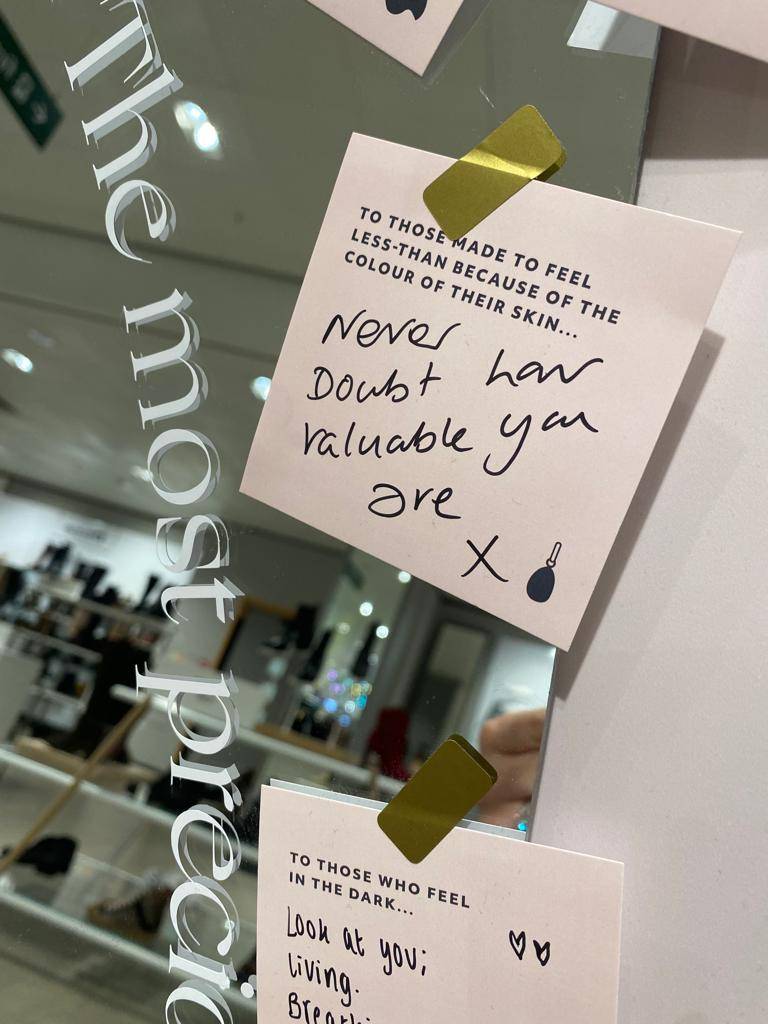 The most precio
TO THOSE MADE TO FEEL
LESS-THAN BECAUSE OF THE
COLOUR OF THEIR SKIN...
Never how
Doubt
valuable you
are
X
TO THOSE WHO FEEL
IN THE DARK...
Look at you;
living.
Breathi